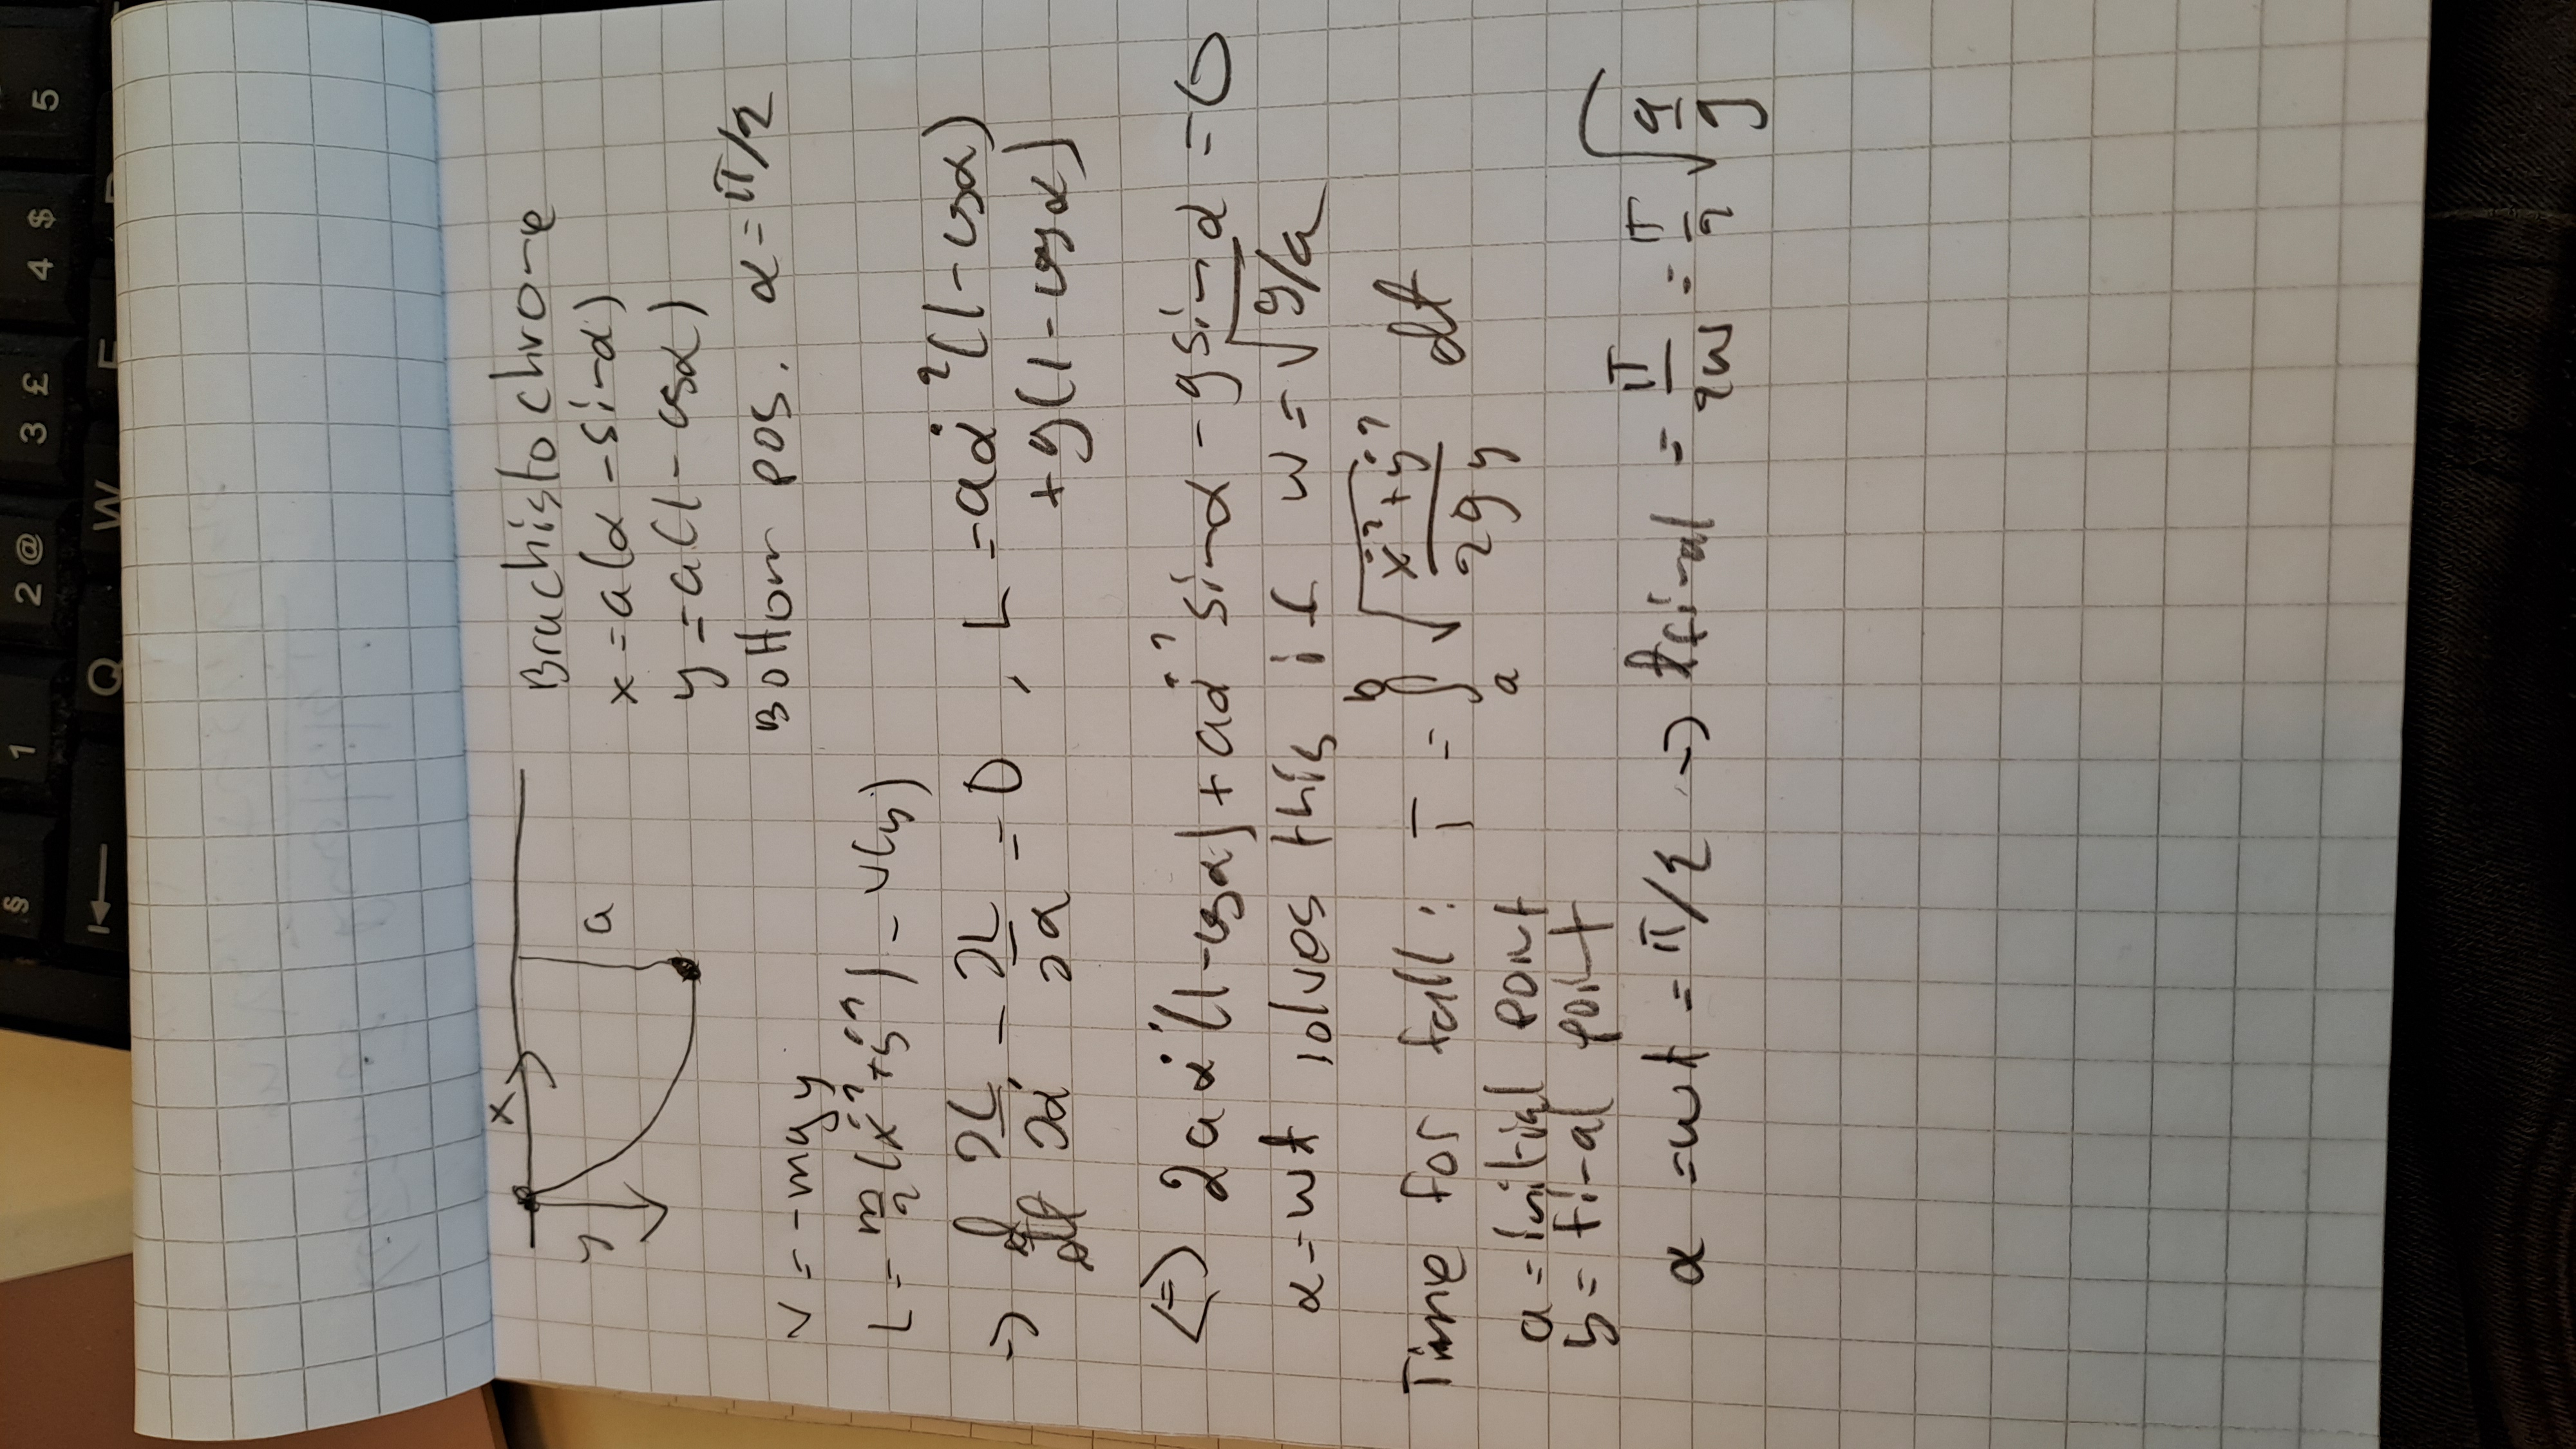 § 1 2 @ 3 £ 4 $ 5
Q W
x
y
a
Brachistochrone
x = a(α - sin α)
y = a(1 - cos α)
Bottom pos. α = π/2
V = -mgy
L = m/2 (ẋ² + ẏ²) - V(y)
→ d/dt ∂L/∂α̇ - ∂L/∂α = 0 , L = aα̇²(1 - cos α)
+ g(1 - cos α)
⇔ 2aα̈(1 - cos α) + aα̇² sin α - g sin α = 0
α = wt solves this if w = √(g/a)
Time for fall: T = ∫_a^b √((ẋ² + ẏ²)/(2gy)) dt
a = initial point
b = final point
α = wt = π/2 → t_final = π/(2w) = π/2 √(a/g)